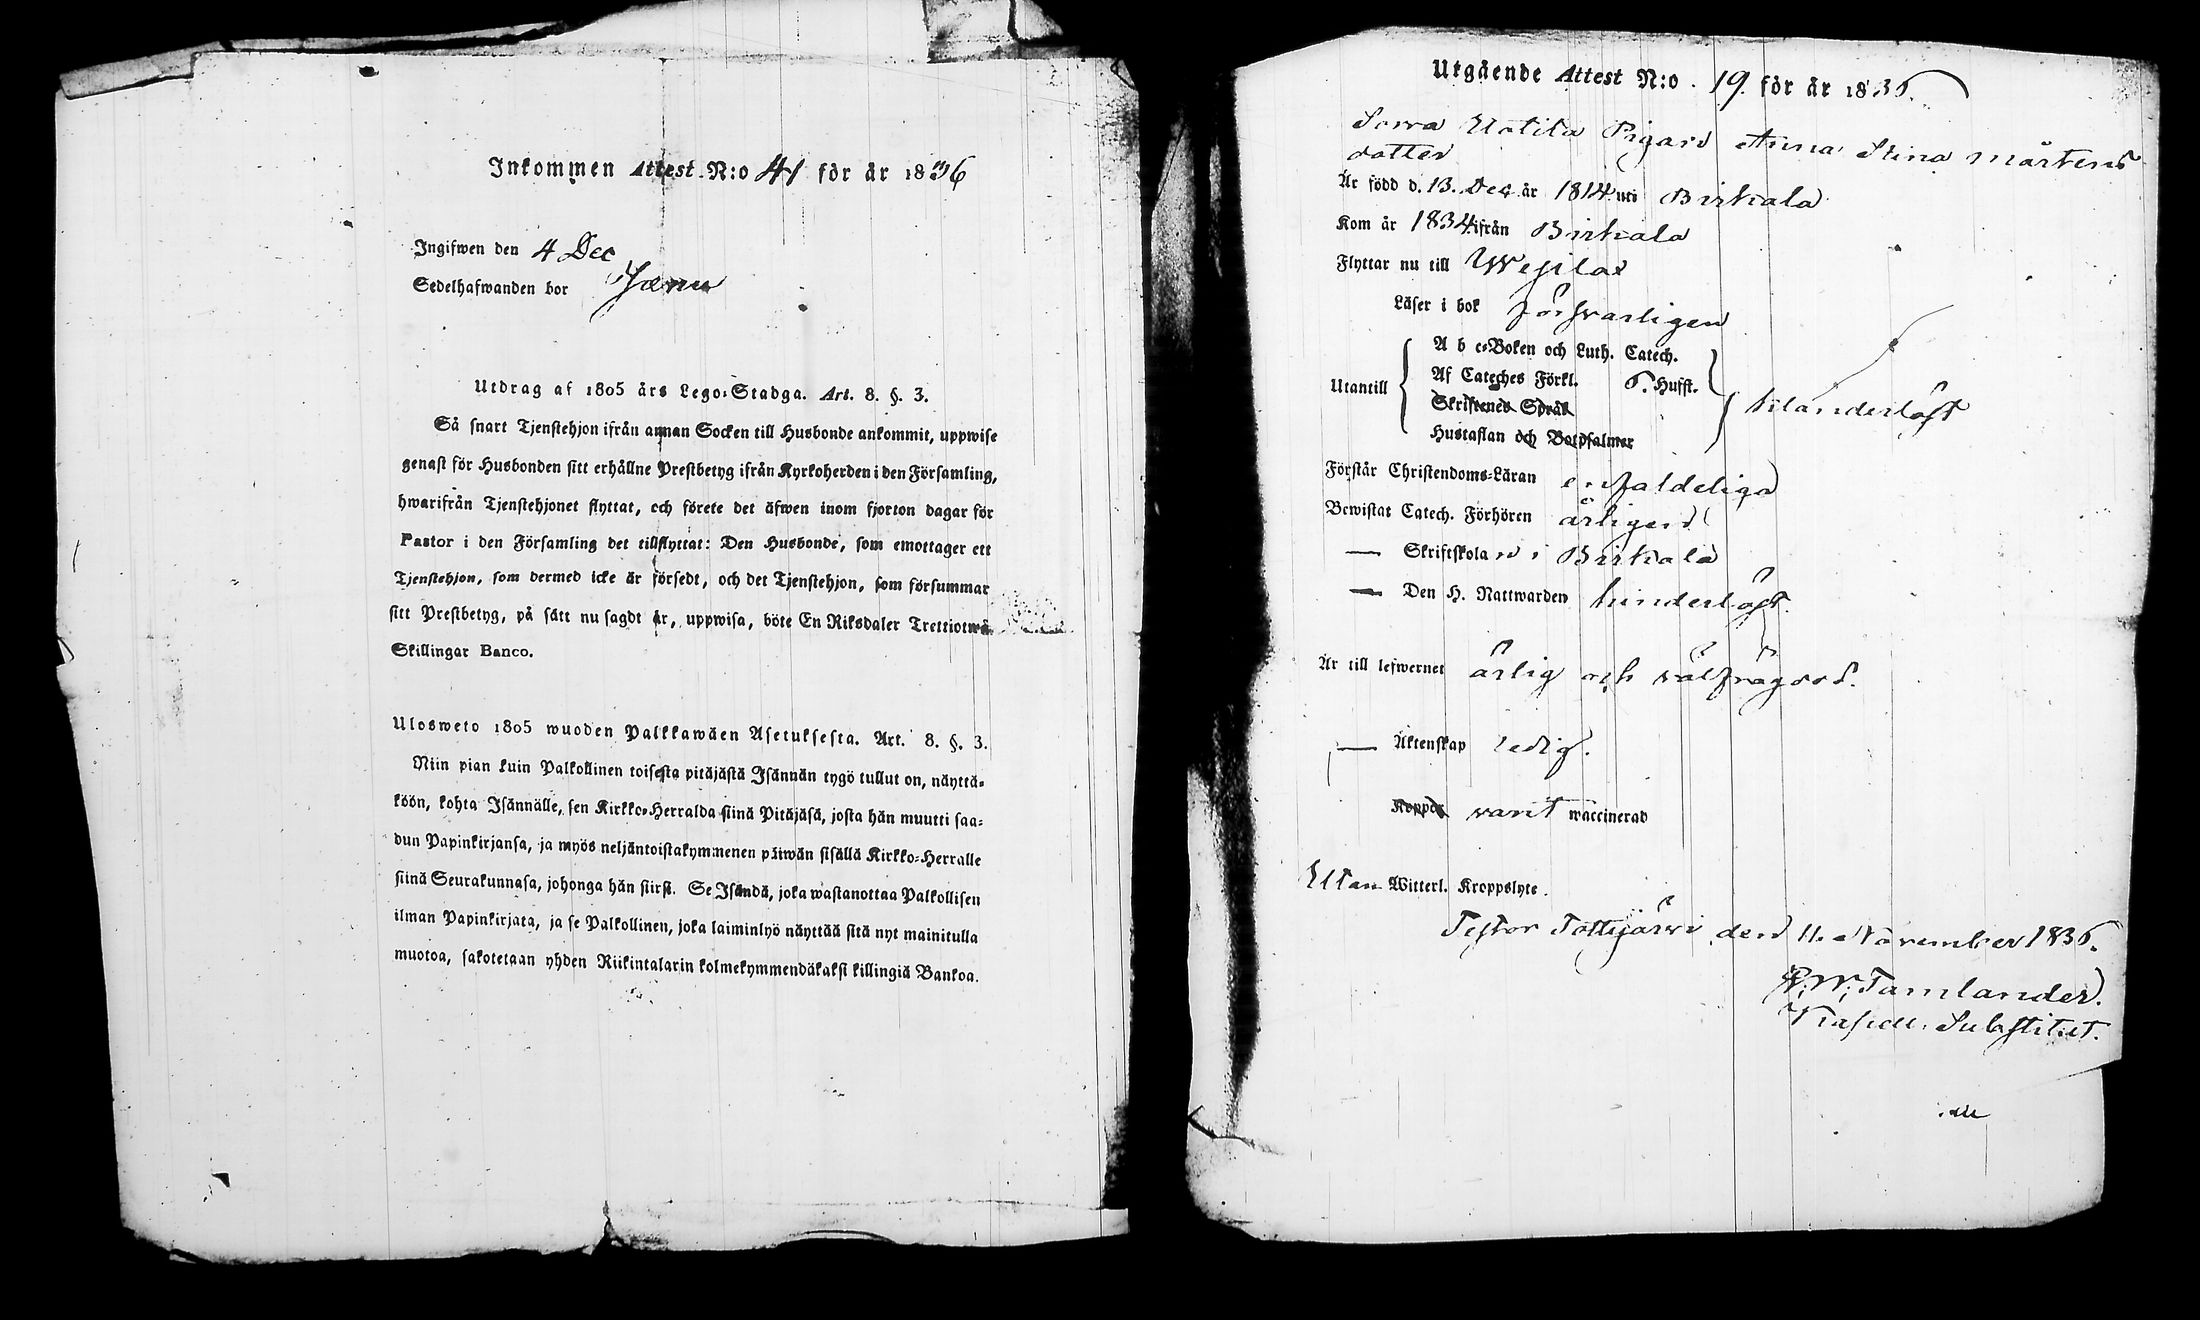 Inkommen Attest N:o 41 för år 1836
Ingifwen den 4 Dec
Sedelhafwanden bor
Utdrag af 1805 års Lego-Stadga. Art. 8. §. 3.
Så snart Tjenstehjon ifrån annan Socken till Husbonde ankommit, uppwise
genast för Husbonden sitt erhållne Prestbetyg ifrån Kyrkoherden i den Församling,
hwarifrån Tjenstehjonet flyttat, och förete det äfwen inom fjorton dagar för
Pastor i den Församling det tillflyttat: Den Husbonde, som emottager ett
Tjenstehjon, som dermed icke är försedt, och det Tjenstehjon, som försummar
sitt Prestbetyg, på sätt nu sagdt är, uppwisa, böte En Riksdaler Trettiotwå
Skillingar Banco.
Ulosweto 1805 wuoden Palkkawäen Asetuksesta. Art. 8. §. 3.
Niin pian kuin Palkollinen toisesta pitäjästä Isännän tygö tullut on, näyttä-
köön, kohta Isännälle, sen Kirkko-Herralda siinä Pitäjäsä, josta hän muutti saa-
dun Papinkirjansa, ja myös neljäntoistakymmenen päiwän sisällä Kirkko-Herralle
siinä Seurakunnasa, johonga hän siirsi. Se Isändä, joka wastanottaa Palkollisen
ilman Papinkirjata, ja se Palkollinen, joka laiminlyö näyttää sitä nyt mainitulla
muotoa, sakotetaan yhden Riikintalarin kolmekymmendäkaksi killingiä Bankoa.
Utgående Attest N:o. 19. för år 1836.
Sorva Uotila Pigan Anna Stina Mårtens
dotter
Är född d. 13. Dec. år 1814 uti Birkala
Kom år 1834 ifrån Birkala
Flyttar nu till Wesilax
Läser i bok försvarligen
A b c-Boken och Luth. Catech.
Utantill Af Cateches Förkl. 6. Hufst. klanderlöst
Skriftenes Språk
Hustaflan och Botpsalmer
Förstår Christendoms-Läran enfaldeliga
Bewistat Catech. Förhören årligen
— Skriftskolan i Birkala
— Den H. Nattwarden hinderlöst.
Är till lefwernet ärlig och välfrägdad.
— Äktenskap ledig.
Koppor varit waccinerad
Utan Witterl. Kroppslyte.
Testor Tottijärvi den 11. November 1836.
Tamlander.
Substitut.